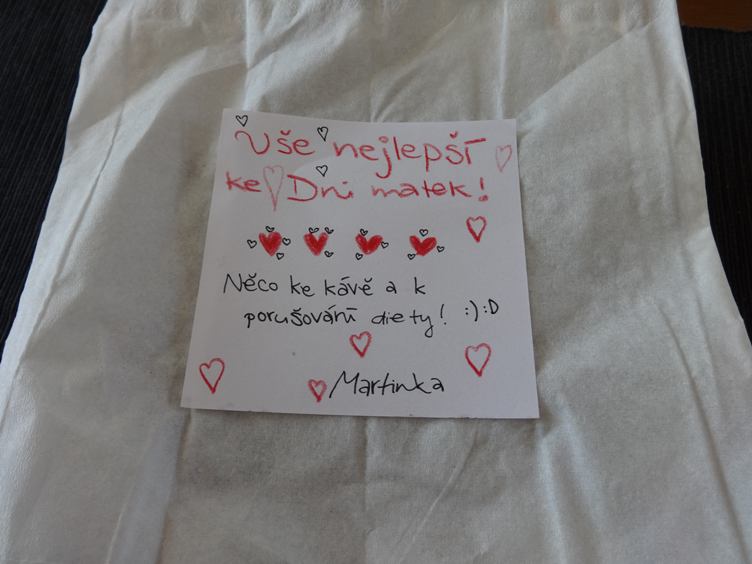 Vše nejlepší
ke Dni matek!
Něco ke kávě a k
porušování diety! :) :D
Martinka